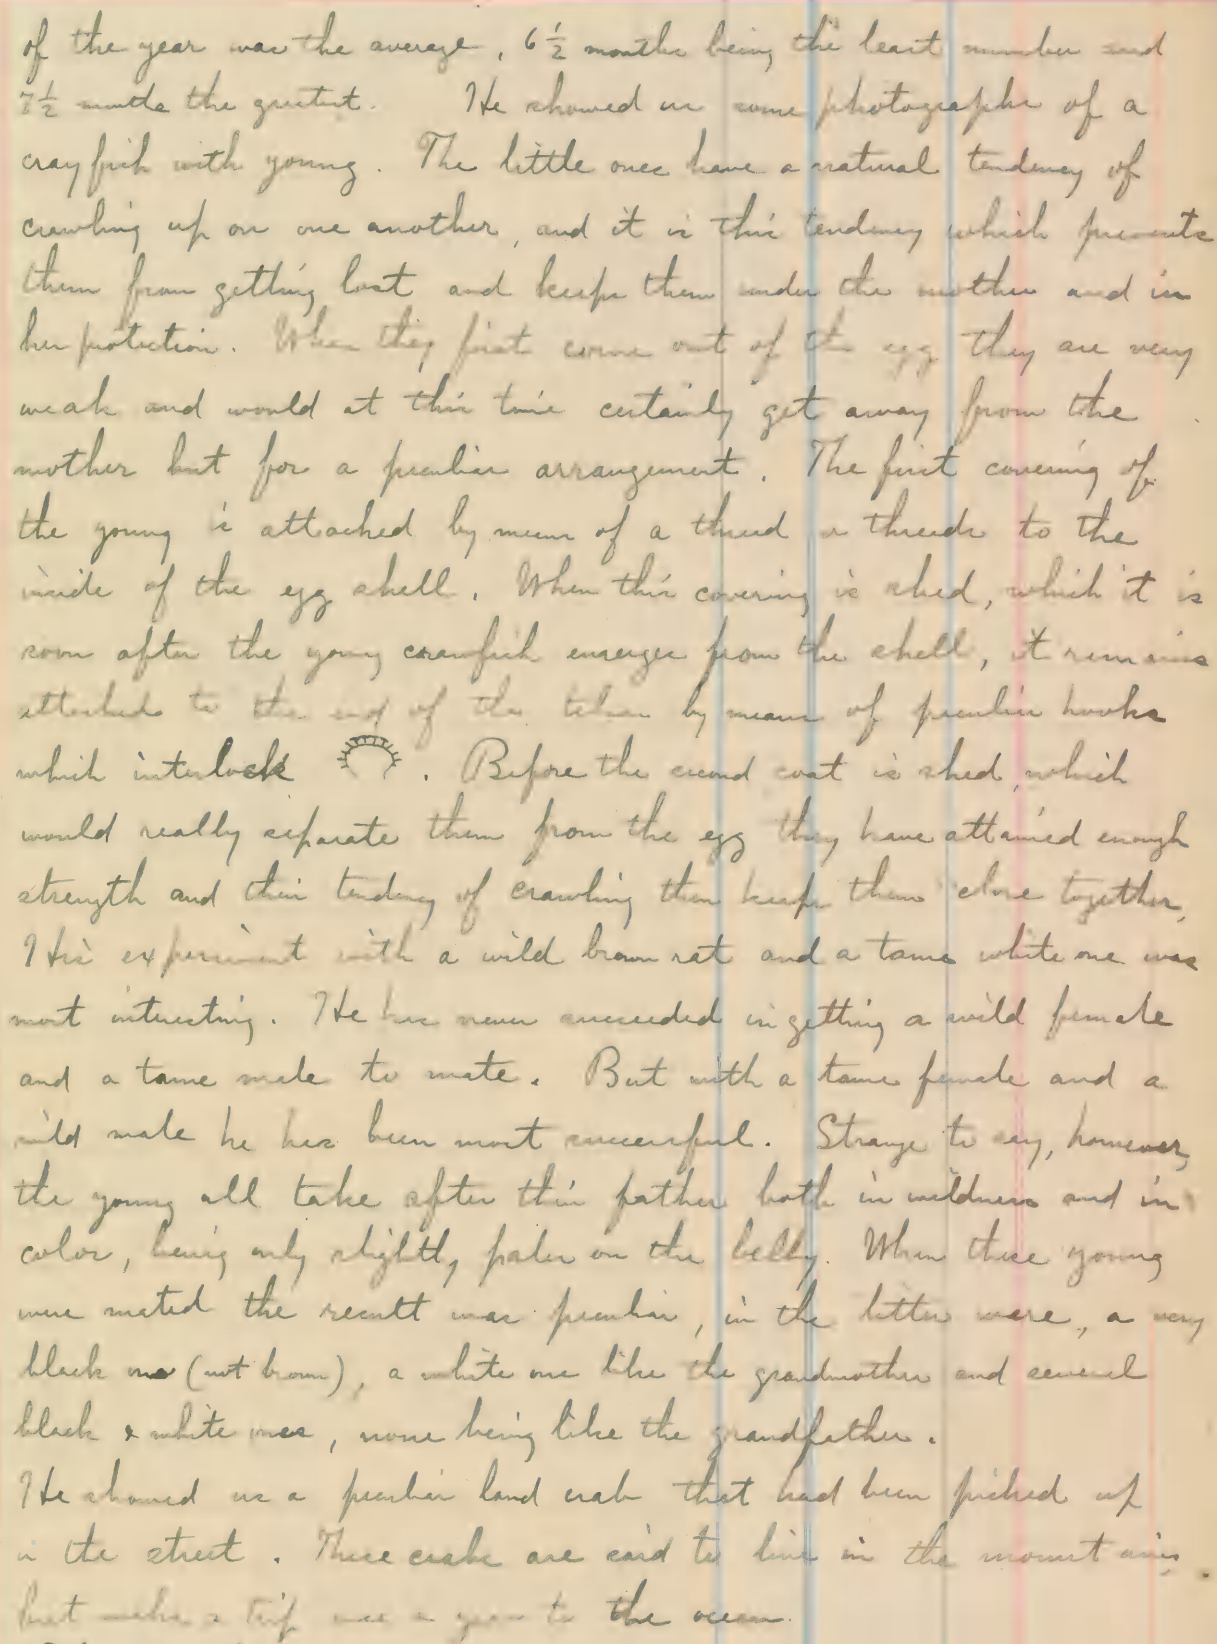 of the year was the average, 6 1/2 months being the least number and
7 1/2 months the greatest. He showed us some photographs of a
crayfish with young. The little ones have a natural tendency of
crawling up on one another, and it is this tendency which prevents
them from getting lost and keeps them under the mother and in
her protection. When they first come out of the egg they are very
weak and would at this time certainly get away from the
mother but for a peculiar arrangement. The first covering of
the young is attached by means of a thread or threads to the
inside of the egg shell. When this covering is shed, which it is
soon after the young crawfish emerges from the shell, it remains
attached to the end of the telson by means of peculiar hooks
which interlock . Before the second coat is shed, which
would really separate them from the egg they have attained enough
strength and their tendency of crawling then keeps them close together.
His experiment with a wild brown rat and a tame white one was
most interesting. He has never succeeded in getting a wild female
and a tame male to mate. But with a tame female and a
wild male he has been most successful. Strange to say, however,
the young all take after their father both in wildness and in
color, being only slightly paler on the belly. When these young
were mated the result was peculiar, in the litter were, a very
black one (not brown), a white one like the grandmother and several
black & white ones, none being like the grandfather.
He showed us a peculiar land crab that had been picked up
in the street. These crabs are said to live in the mountains
but make a trip once a year to the ocean.